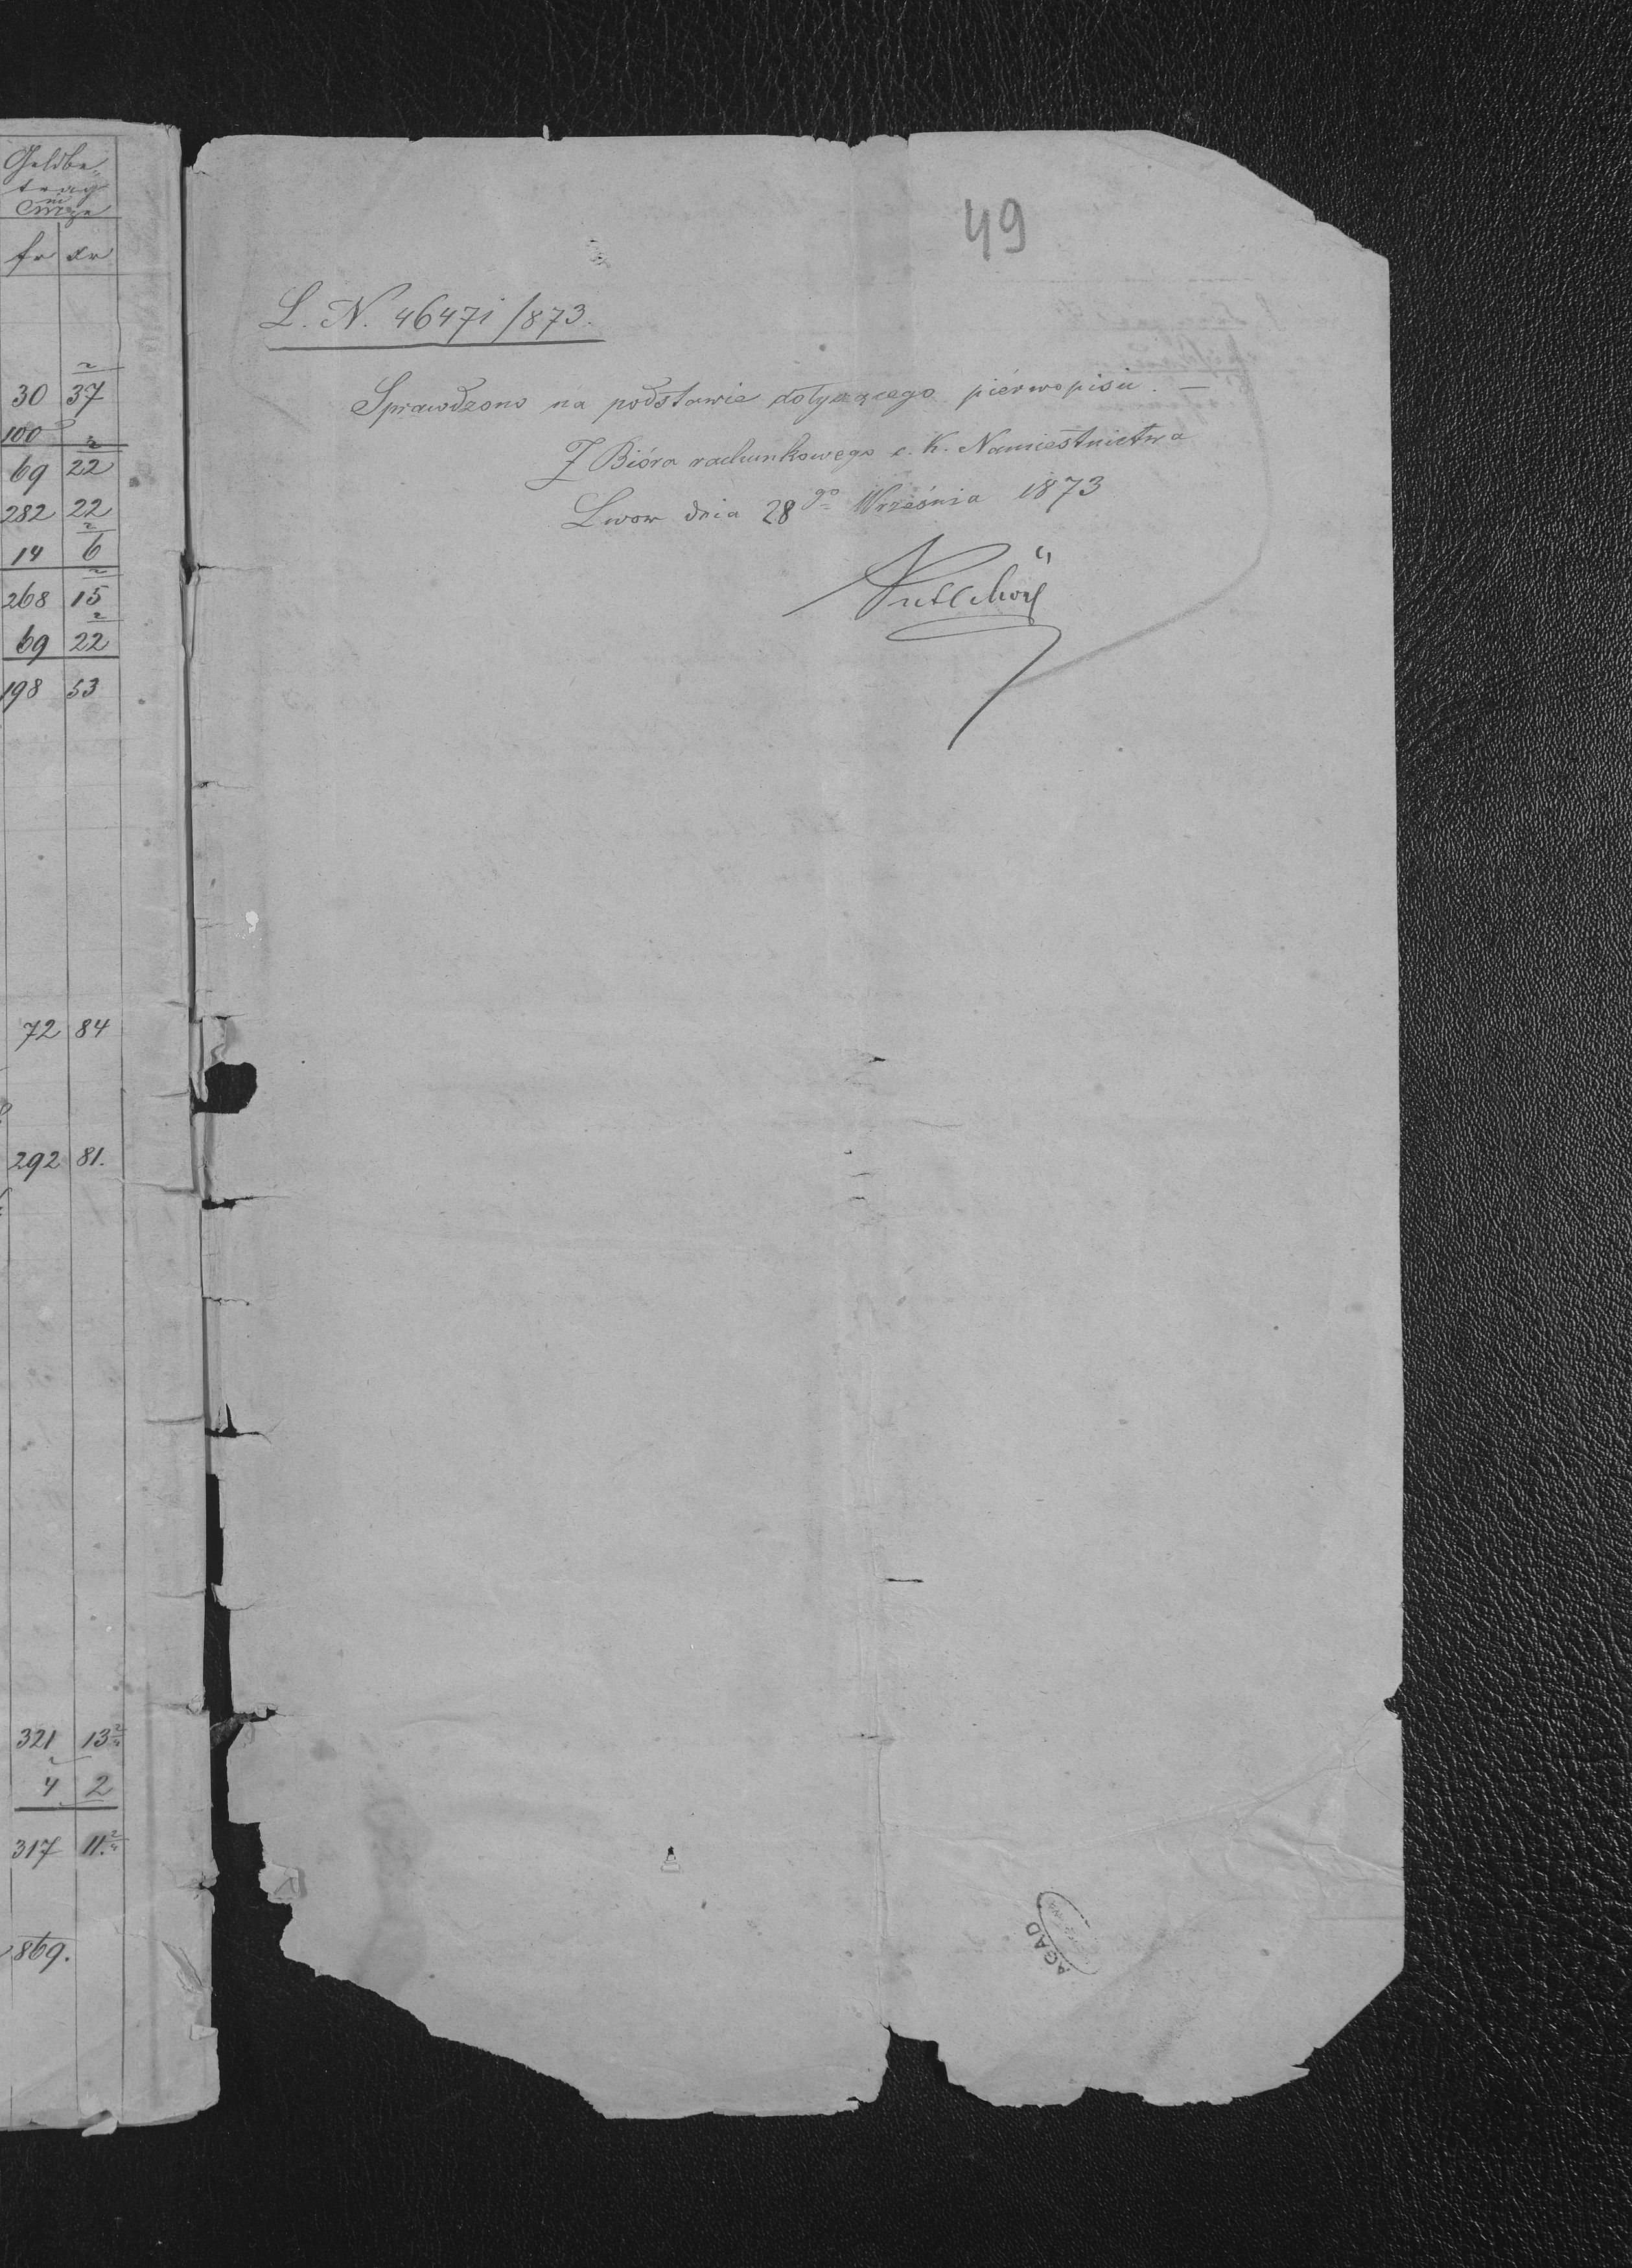 Geldbe-
trag
in
fr xr
30 37
100
69 22
282 22
14 6
268 15
69 22
198 53
72 84
292 81.
321 13 2/4
4 2
317 11 2/4
869.
49
L. N. 46471/873.
Sprawdzono na podstawie dotyczącego pierwopisu. —
Z Bióra rachunkowego c. K. Namiestnictwa
Lwow dnia 28go Września 1873
AGAD